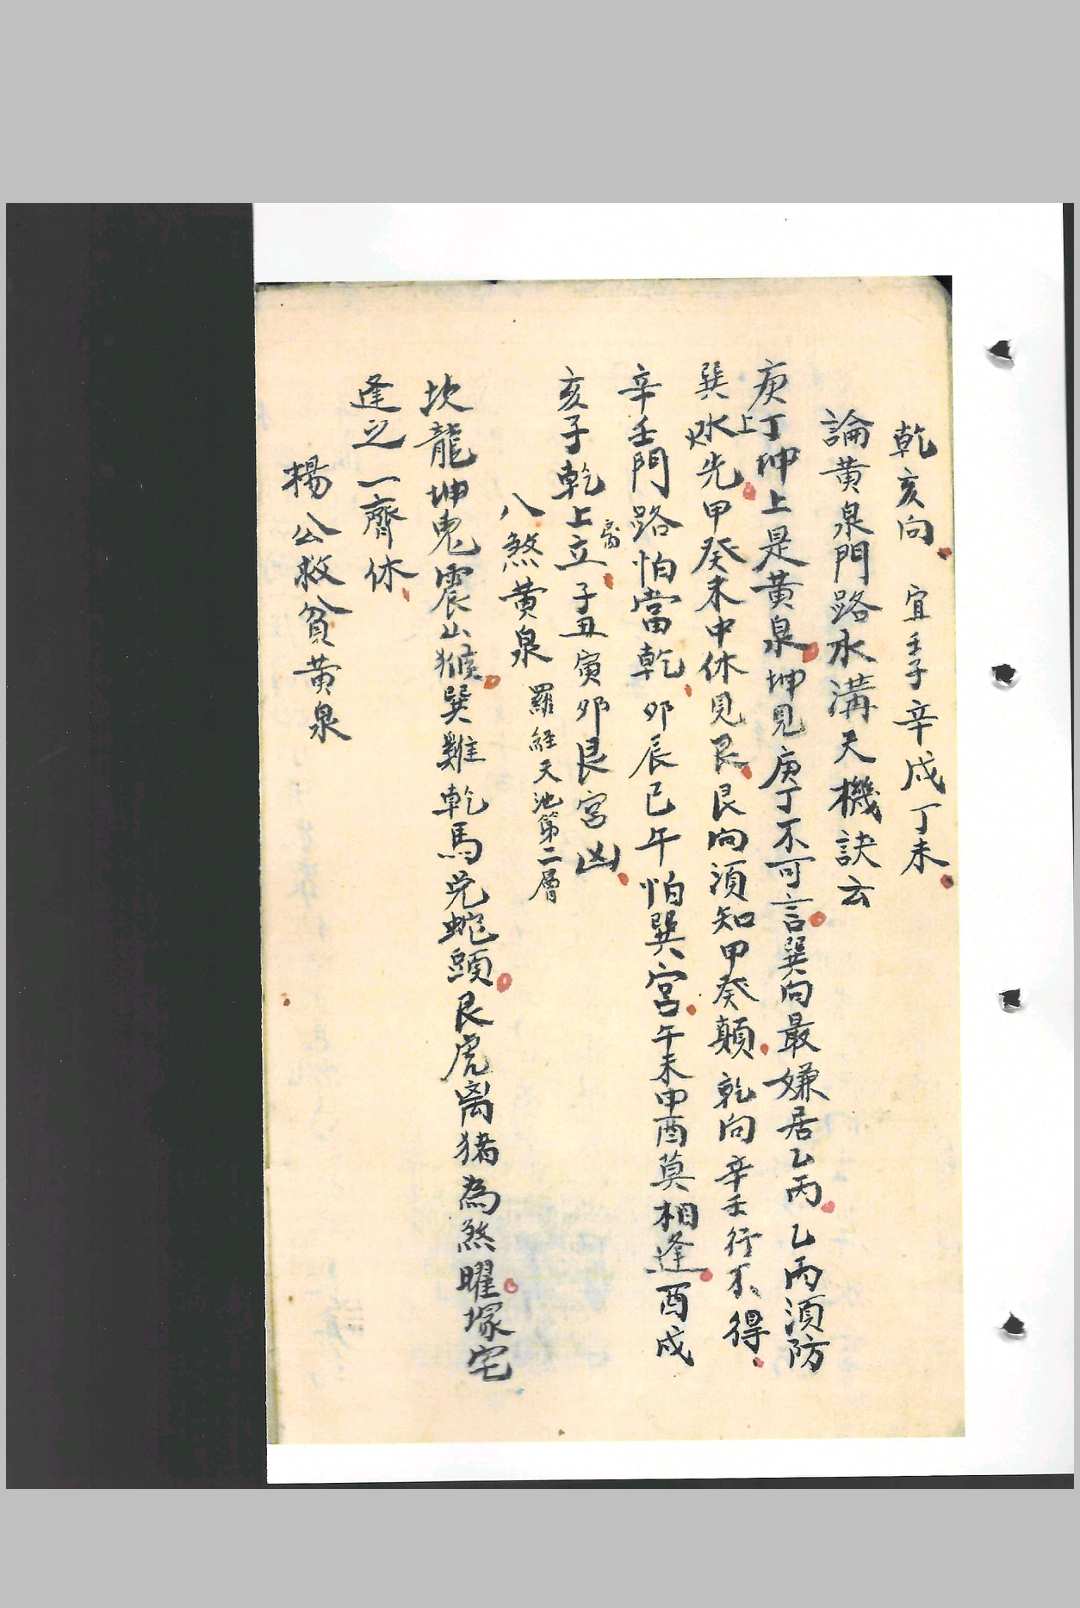 乾亥向 宜壬子辛戌丁未
論黄泉門路水溝天機訣云
庚丁坤上是黄泉坤見庚丁不可言巽向最嫌居乙丙乙丙須防
巽水上先甲癸未中休見艮艮向須知甲癸顛乾向辛壬行不得
辛壬門路怕當乾卯辰巳午怕巽宮午未申酉莫相逢酉戌
亥子乾上立子丑寅卯艮宮凶
八煞黄泉 羅経天池第二層
坎龍坤兎震山猴巽雞乾馬兌蛇頭艮虎离猪為煞曜塚宅
逢之一齊休
楊公救貧黄泉